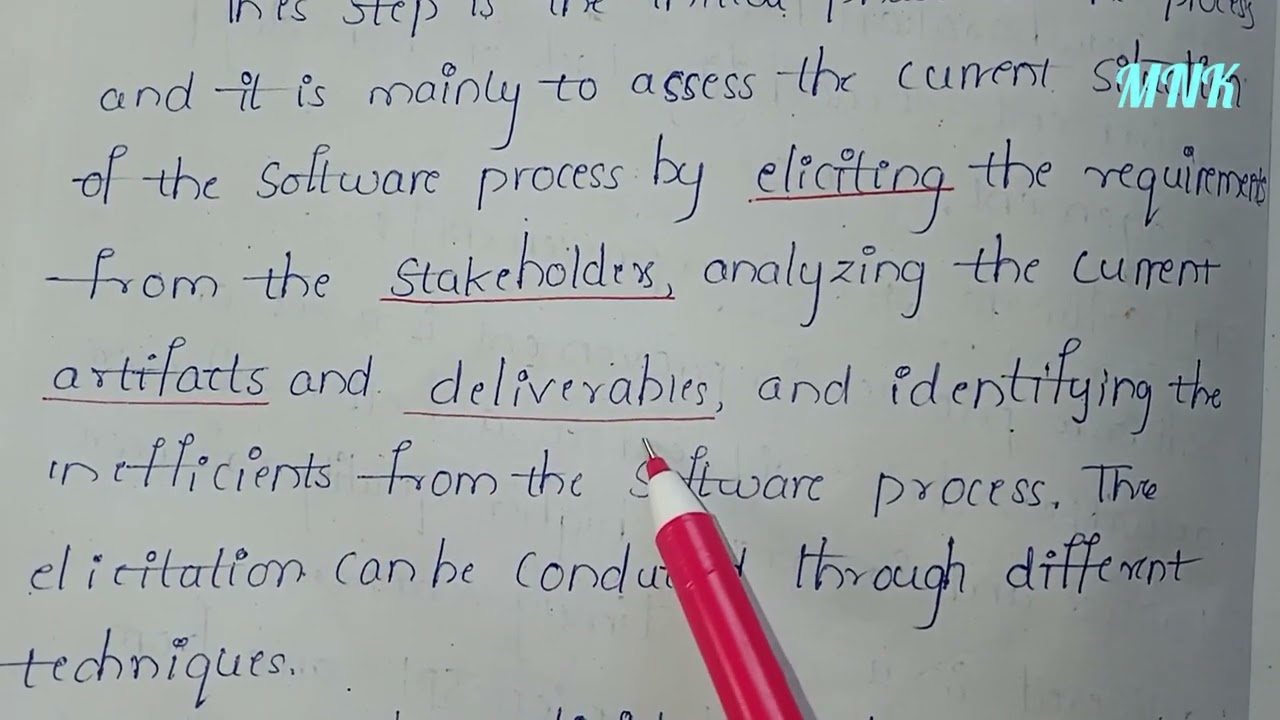 This step is the process
and it is mainly to assess the current MNK
of the software process by eliciting the requirements
from the stakeholders, analyzing the current
artifacts and deliverables, and identifying the
inefficients from the software process. The
elicitation can be through different
techniques.